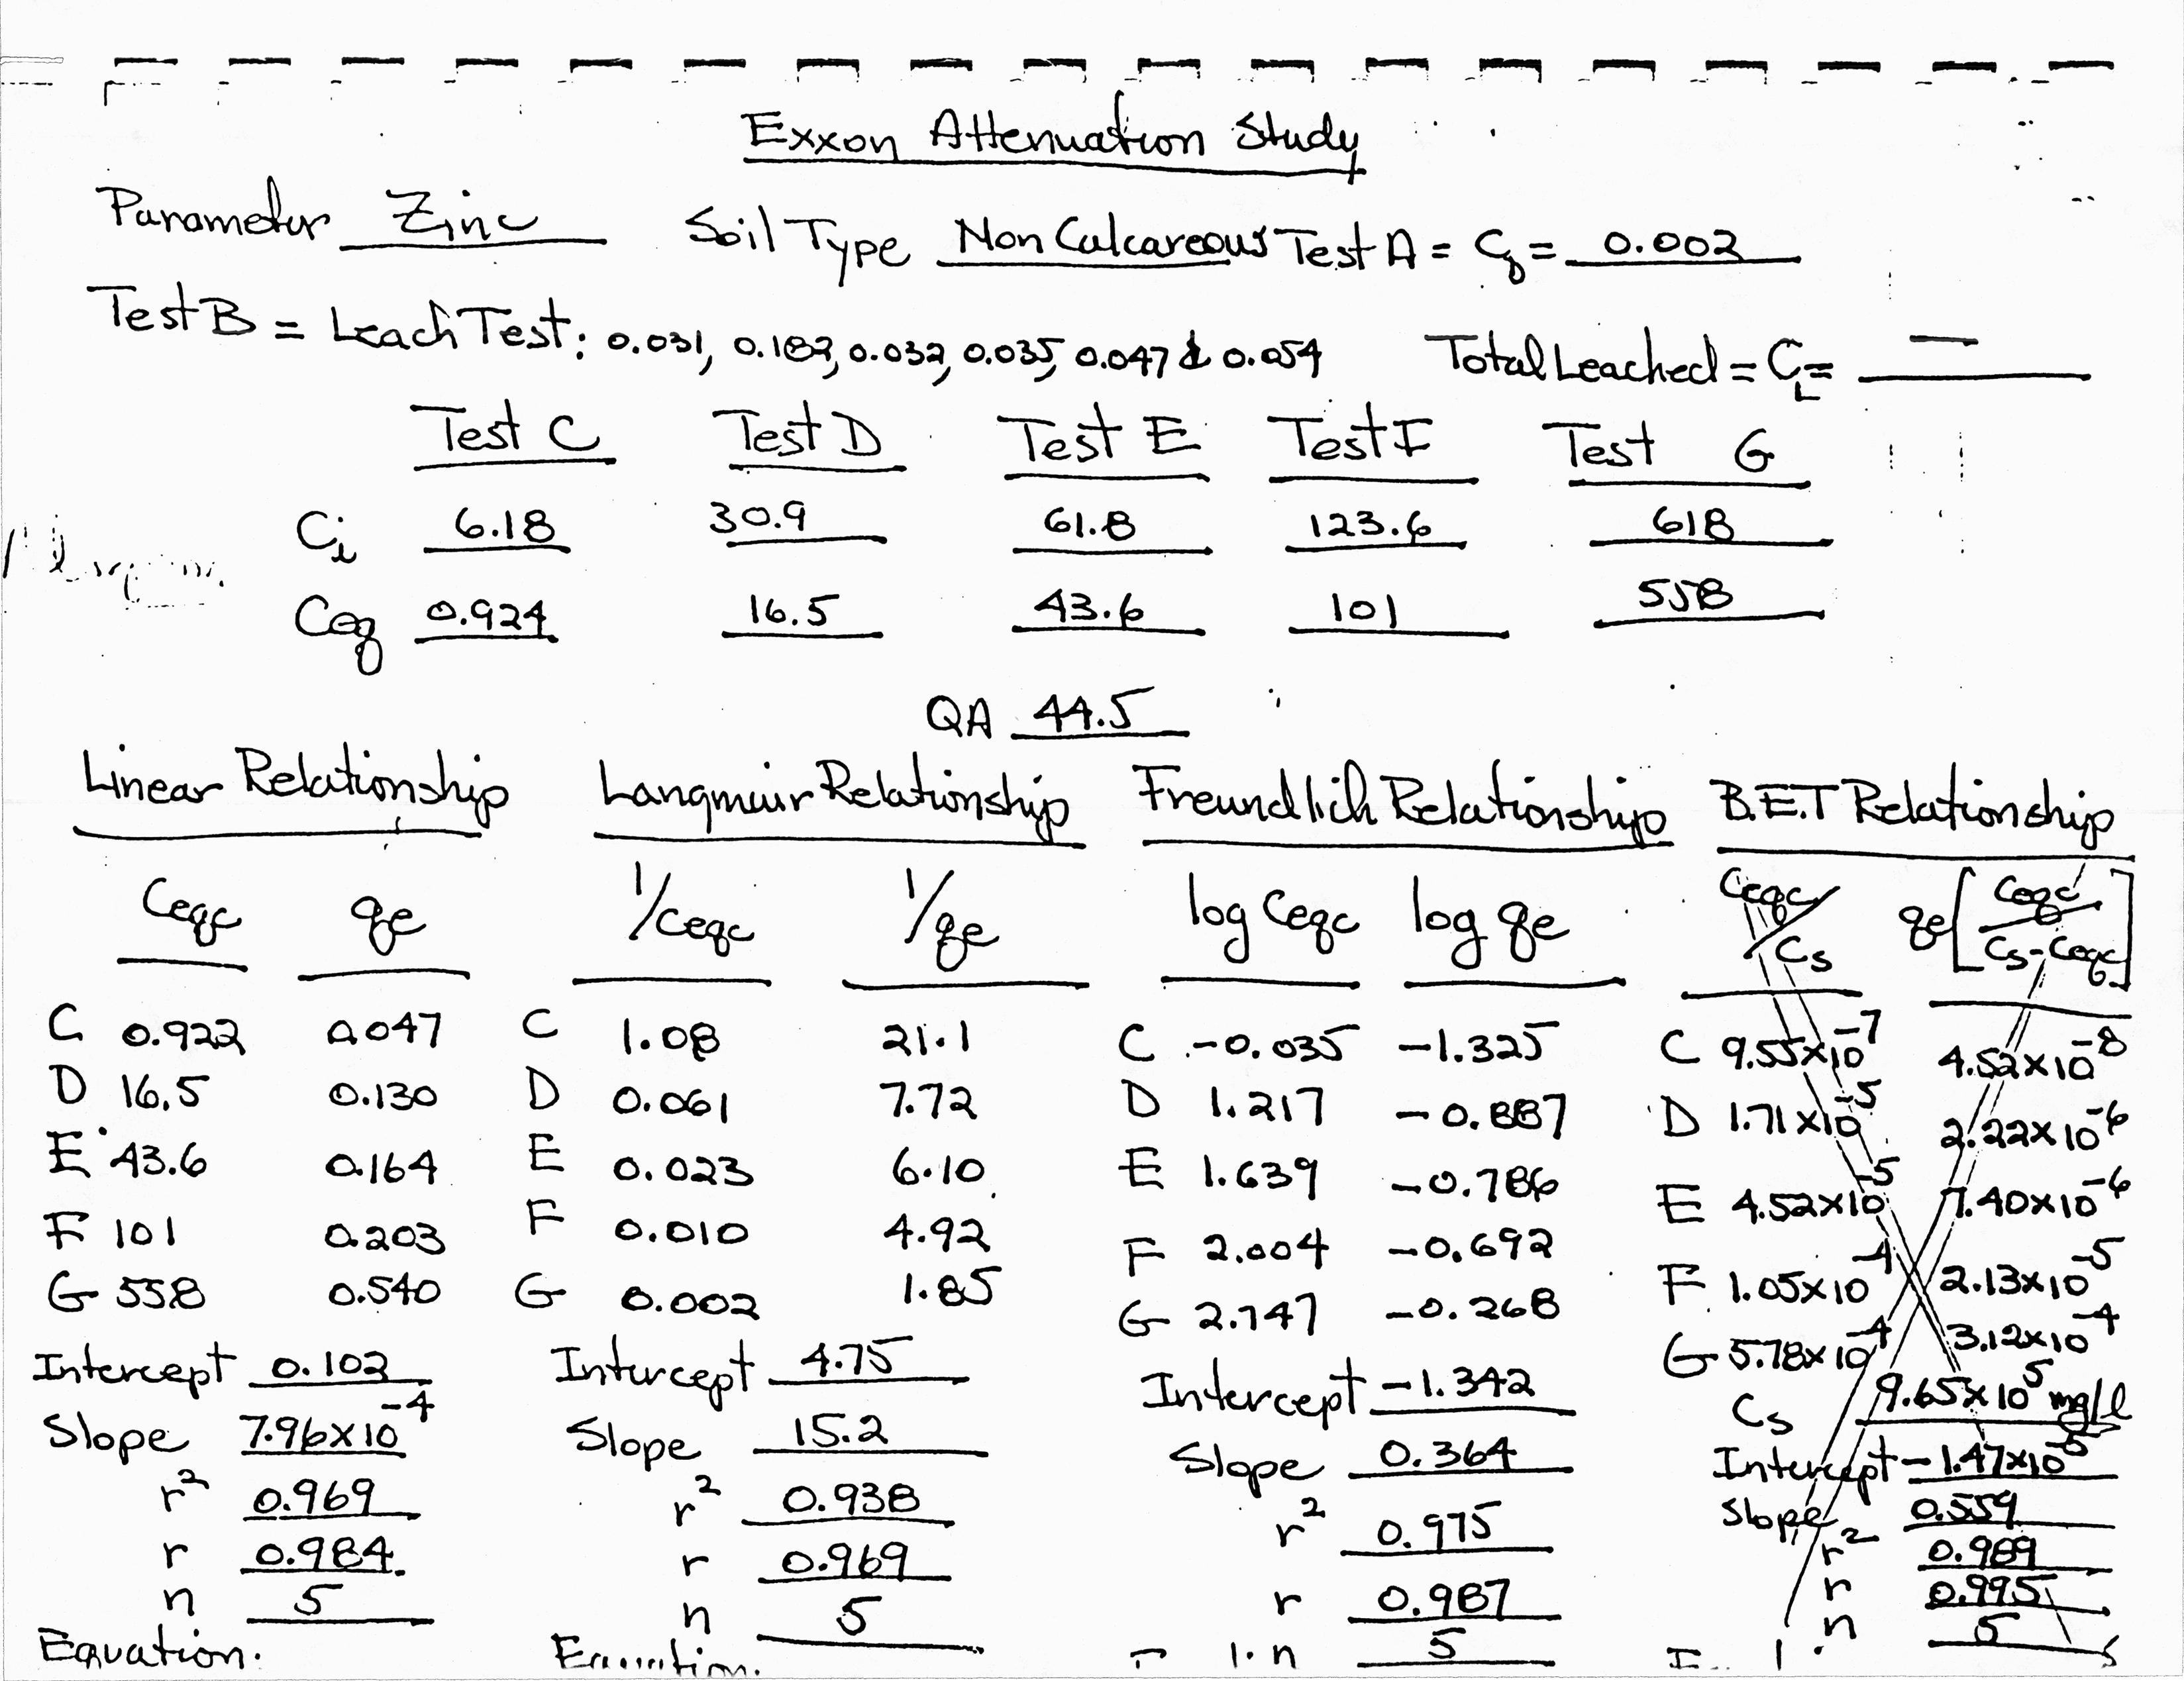 Exxon Attenuation Study
Parameter Zinc Soil Type Non Calcareous Test A = Cb = 0.002
Test B = Leach Test: 0.031, 0.182, 0.032, 0.035, 0.047 & 0.054 Total Leached = CL = —
Test C Test D Test E Test F Test G
Ci 6.18 30.9 61.8 123.6 618
Ceq 0.924 16.5 43.6 101 558
QA 44.5
Linear Relationship Langmuir Relationship Freundlich Relationship B.E.T Relationship
Ceqc qe 1/Ceqc 1/qe log Ceqc log qe Ceqc/Cs qe[Ceqc/Cs-Ceqc]
C 0.922 0.047 C 1.08 21.1 C -0.035 -1.325 C 9.55x10^-7 4.52x10^-8
D 16.5 0.130 D 0.061 7.72 D 1.217 -0.887 D 1.71x10^-5 2.22x10^-6
E 43.6 0.164 E 0.023 6.10 E 1.639 -0.786 E 4.52x10^-5 7.40x10^-6
F 101 0.203 F 0.010 4.92 F 2.004 -0.692 F 1.05x10^-4 2.13x10^-5
G 558 0.540 G 0.002 1.85 G 2.747 -0.268 G 5.78x10^-4 3.12x10^-4
Cs 9.65x10^5 mg/l
Intercept 0.102 Intercept 4.75 Intercept -1.342 Intercept -1.47x10^-5
Slope 7.96x10^-4 Slope 15.2 Slope 0.364 Slope 0.559
r² 0.969 r² 0.938 r² 0.975 r² 0.989
r 0.984 r 0.969 r 0.987 r 0.995
n 5 n 5 n 5 n 5
Equation.